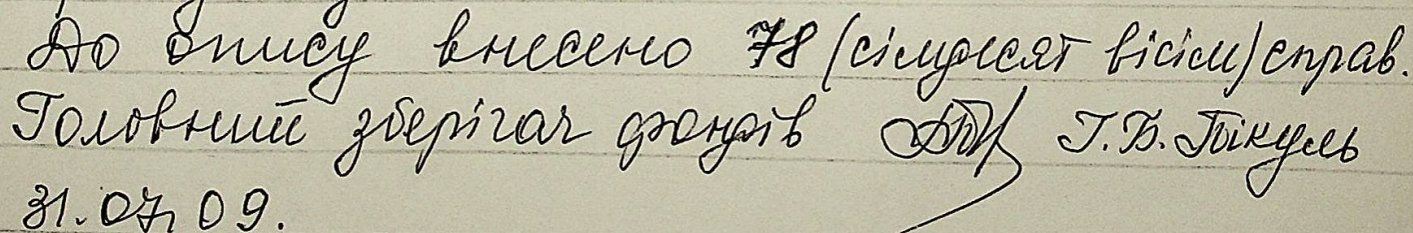 До опису внесено 78 (сімдесят вісім) справ.
Головний зберігач фондів Г.Б. Пікуль
31.07.09.